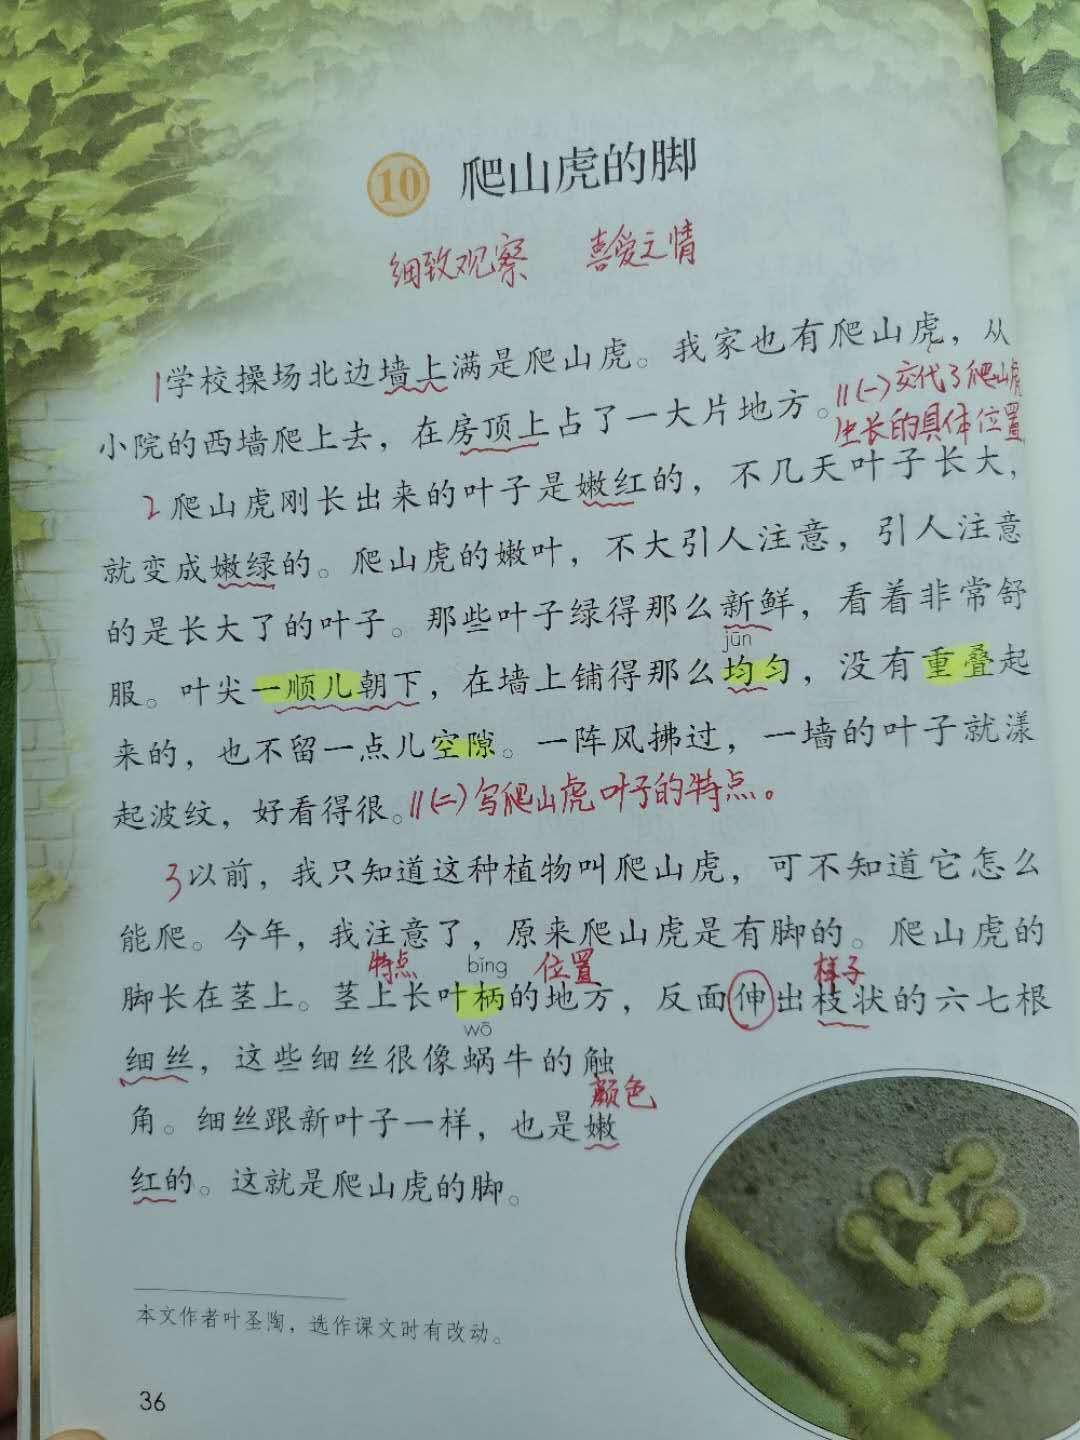 10 爬山虎的脚
细致观察 喜爱之情
1学校操场北边墙上满是爬山虎。我家也有爬山虎，从
小院的西墙爬上去，在房顶上占了一大片地方。
∥(一)交代了爬山虎
生长的具体位置
2爬山虎刚长出来的叶子是嫩红的，不几天叶子长大，
就变成嫩绿的。爬山虎的嫩叶，不大引人注意，引人注意
的是长大了的叶子。那些叶子绿得那么新鲜，看着非常舒
jūn
服。叶尖一顺儿朝下，在墙上铺得那么均匀，没有重叠起
来的，也不留一点儿空隙。一阵风拂过，一墙的叶子就漾
起波纹，好看得很。∥(二)写爬山虎叶子的特点。
3以前，我只知道这种植物叫爬山虎，可不知道它怎么
能爬。今年，我注意了，原来爬山虎是有脚的。爬山虎的
特点 bǐng 位置 样子
脚长在茎上。茎上长叶柄的地方，反面伸出枝状的六七根
wō
细丝，这些细丝很像蜗牛的触
颜色
角。细丝跟新叶子一样，也是嫩
红的。这就是爬山虎的脚。
本文作者叶圣陶，选作课文时有改动。
36